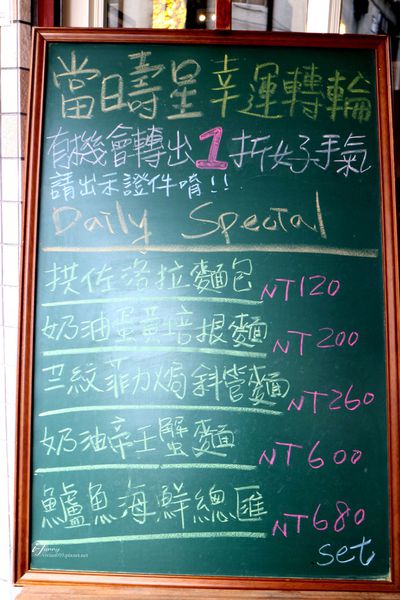 當日壽星幸運轉輪
有機會轉出1折好手氣
請出示證件唷!!
Daily Special
拱佐洛拉麵包 NT120
奶油蛋黃培根麵 NT200
三紋菲力焗斜管麵 NT260
奶油帝王蟹麵 NT600
鱸魚海鮮總匯 NT680
set